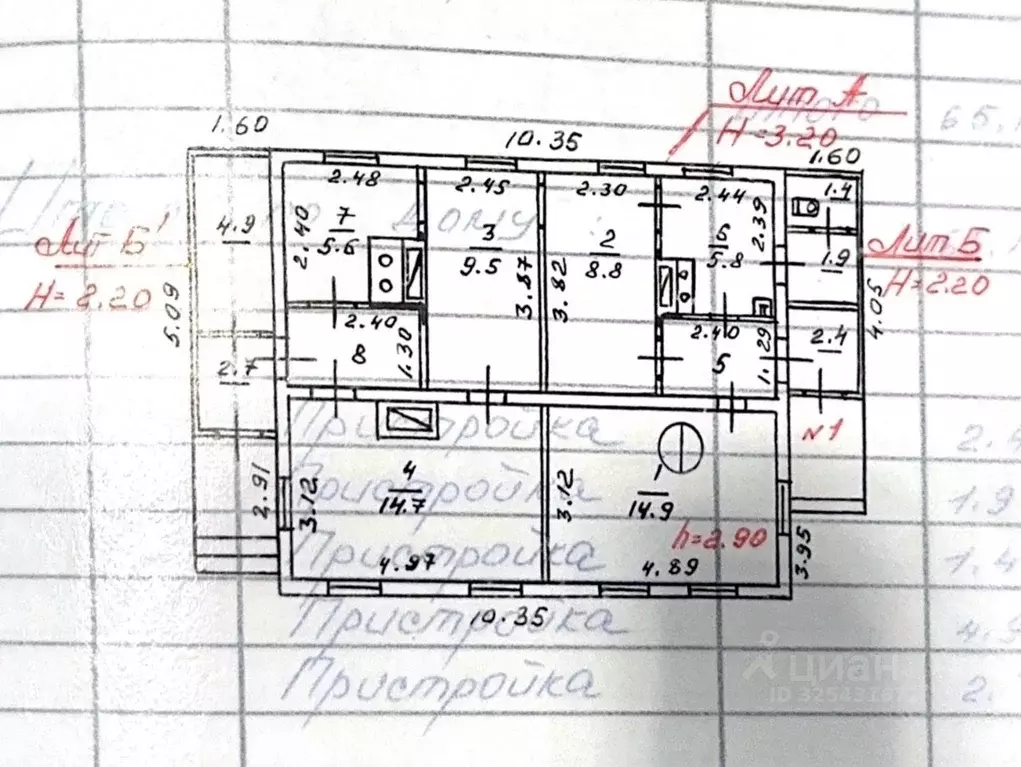 Лит А
итого
65.
H = 3.20
1.60
10.35
1.60
2.48
2.45
2.30
2.44
1.4
2.40
7
5.6
3
9.5
3.87
2
8.8
3.82
6
5.8
2.39
1.9
4.9
дому
Лит Б'
H = 2.20
Лит Б
H = 2.20
5.09
4.05
2.40
8
1.30
2.40
5
1.29
2.4
2.7
№1
Пристройка
2.4
2.91
3.12
4
14.7
3.12
1
14.9
Пристройка
1.9
h = 2.90
3.95
Пристройка
1.4
4.97
4.89
10.35
Пристройка
4.9
Пристройка
2.
циан